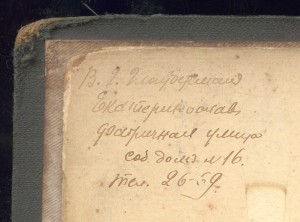 В. І.
Екатеринослав
фабричная улица
соб. домъ № 16.
тел. 26-59.